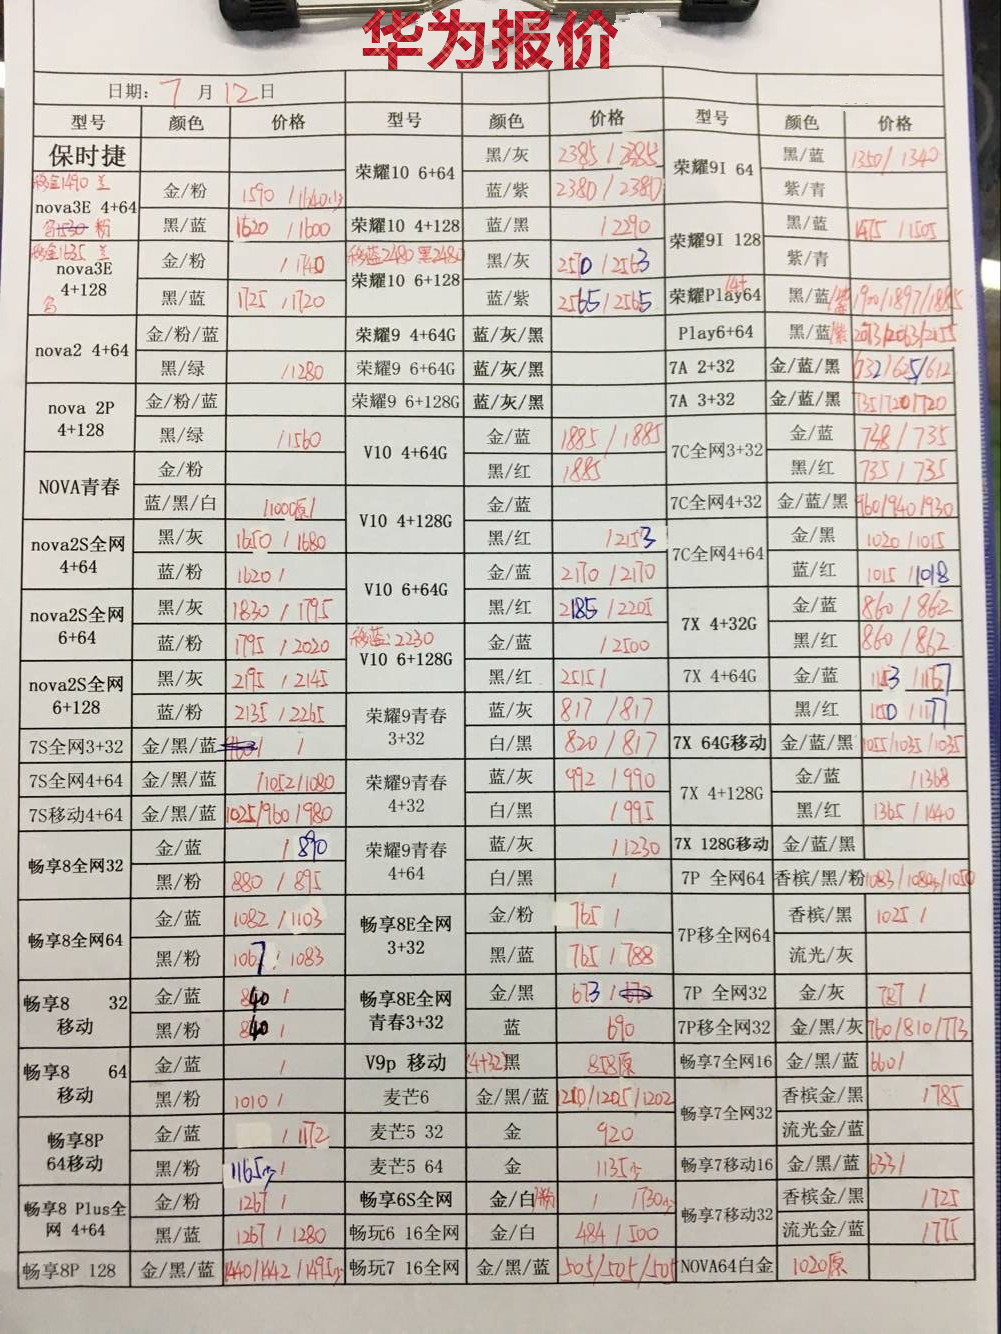 华为报价
日期: 7 月 12 日
型号 颜色 价格 型号 颜色 价格 型号 颜色 价格
保时捷
移金1490 nova3E 4+64 金/粉 1590
黑/蓝 1620 / 1600
移金1635 nova3E 4+128 金/粉 / 1740
黑/蓝 1725 / 1720
nova2 4+64 金/粉/蓝
黑/绿 / 1280
nova 2P 4+128 金/粉/蓝
黑/绿 / 1560
NOVA青春 金/粉
蓝/黑/白 1000原/
nova2S全网 4+64 黑/灰 1650 / 1680
蓝/粉 1620 /
nova2S全网 6+64 黑/灰 1830 / 1795
蓝/粉 1795 / 2020
nova2S全网 6+128 黑/灰 2195 / 2145
蓝/粉 2135 / 2265
7S全网3+32 金/黑/蓝 / /
7S全网4+64 金/黑/蓝 /1052/1080
7S移动4+64 金/黑/蓝 1025/960/980
畅享8全网32 金/蓝 / 890
黑/粉 880 / 895
畅享8全网64 金/蓝 1082 / 1103
黑/粉 1067 / 1083
畅享8 32 移动 金/蓝 840 /
黑/粉 840 /
畅享8 64 移动 金/蓝 /
黑/粉 1010 /
畅享8P 64移动 金/蓝 / 1172
黑/粉 1165 /
畅享8 Plus全网 4+64 金/粉 1267 /
黑/蓝 1267 / 1280
畅享8P 128 金/黑/蓝 1440/1442/1495
荣耀10 6+64 黑/灰 2385 / 2385
蓝/紫 2380 / 2380
荣耀10 4+128 蓝/黑 / 2290
移蓝2480 黑2480 荣耀10 6+128 黑/灰 2570 / 2563
蓝/紫 2565 / 2565
荣耀9 4+64G 蓝/灰/黑
荣耀9 6+64G 蓝/灰/黑
荣耀9 6+128G 蓝/灰/黑
V10 4+64G 金/蓝 1885 / 1885
黑/红 1885
V10 4+128G 金/蓝
黑/红 / 2153
V10 6+64G 金/蓝 2170 / 2170
黑/红 2185 / 2205
移蓝:2230 V10 6+128G 金/蓝 / 2500
黑/红 2515 /
荣耀9青春 3+32 蓝/灰 817 / 817
白/黑 820 / 817
荣耀9青春 4+32 蓝/灰 992 / 990
白/黑 / 995
荣耀9青春 4+64 蓝/灰 / 1230
白/黑 /
畅享8E全网 3+32 金/粉 765 /
黑/蓝 765 / 788
畅享8E全网 青春3+32 金/黑 673 /
蓝 690
V9p 移动 (4+32)黑 858原
麦芒6 金/黑/蓝 1210/1205/1202
麦芒5 32 金 920
麦芒5 64 金 1135
畅享6S全网 金/白/粉 / 730
畅玩6 16全网 金/白 484 / 500
畅玩7 16全网 金/黑/蓝 505/505/505
荣耀9I 64 黑/蓝 1350/ 1340
紫/青
荣耀9I 128 黑/蓝 1475 / 1505
紫/青
荣耀Play64 黑/蓝/紫 1900/1897/1885
Play6+64 黑/蓝/紫 2073/2063/2055
7A 2+32 金/蓝/黑 632/625/612
7A 3+32 金/蓝/黑 735/720/720
7C全网3+32 金/蓝 748 / 735
黑/红 735 / 735
7C全网4+32 金/蓝/黑 960/940/930
7C全网4+64 金/黑 1020 / 1015
蓝/红 1015 / 1018
7X 4+32G 金/蓝 860 / 862
黑/红 860 / 862
7X 4+64G 金/蓝 1153 / 1167
黑/红 1150 / 1177
7X 64G移动 金/蓝/黑 1055/1035/1035
7X 4+128G 金/蓝 / 1368
黑/红 1365 / 1440
7X 128G移动 金/蓝/黑
7P 全网64 香槟/黑/粉 1083/1080/1050
7P移全网64 香槟/黑 1025 /
流光/灰
7P 全网32 金/灰 787 /
7P移全网32 金/黑/灰 760/810/773
畅享7全网16 金/黑/蓝 660 /
畅享7全网32 香槟金/黑 / 785
流光金/蓝
畅享7移动16 金/黑/蓝 633 /
畅享7移动32 香槟金/黑 / 725
流光金/蓝 / 775
NOVA64白金 1020原